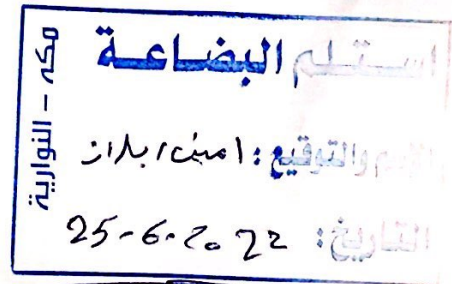 استلم البضاعة
الإسم والتوقيع: امين
التاريخ: 25-6-2022
مكه - النوارية